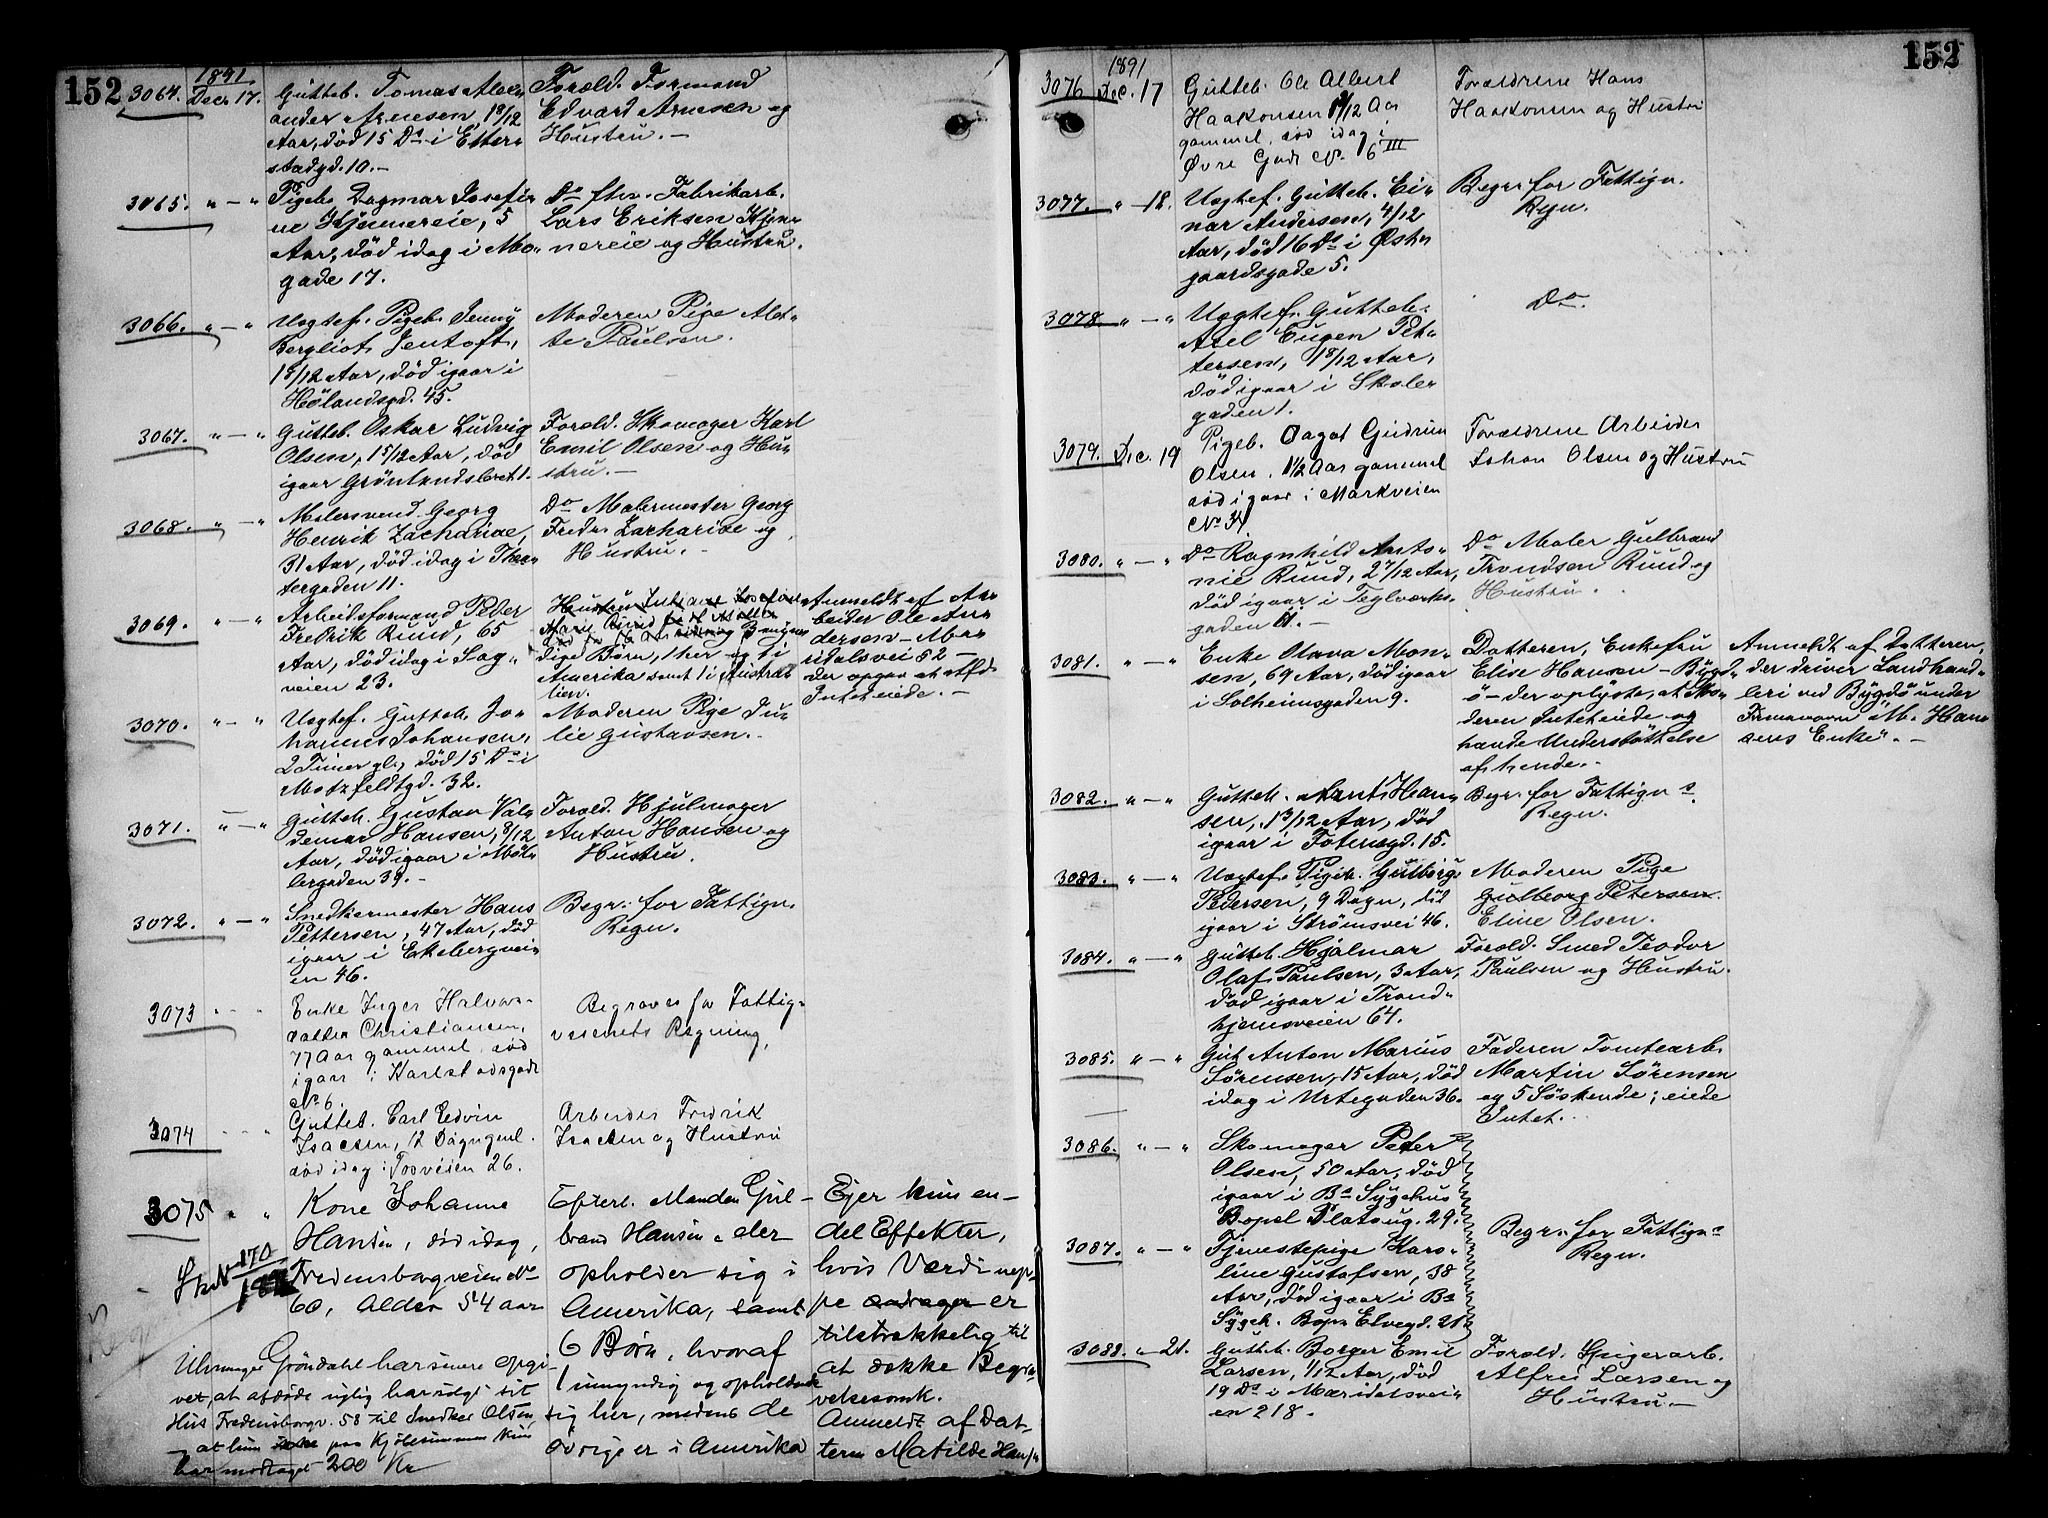 152
1891
3064. Decr. 17. Gutteb. Tomas Alex-
ander Arnesen, 1 9/12
Aar, død 15 Ds i Etter-
stadgd. 10.-
Foræld. Formand
Edvard Arnesen og
Hustru.-
3065. " — " Pigeb. Dagmar Josefi-
ne Kjennereie, 5
Aar, død idag i Mo-
gade 17.
Do fhv. Fabrikarb.
Lars Eriksen Kjen-
nereie og Hustru.
3066. " — " Uægtef. Pigeb. Jenny
Bergliot Jentoft,
1 5/12 Aar, død igaar i
Hølandsgd. 45.
Moderen Pige
Paulsen.
3067. " — " Gutteb. Oskar Ludvig
Olsen, 1 5/12 Aar, død
igaar Grønlandsleret 1.
Foræld. Skomager Karl
Emil Olsen og Hu-
stru.-
3068. " — " Malersvend Georg
Henrik Zachariae,
31 Aar, død idag i Thea-
tergaden 11.
Do Malermester Georg
Fredr. Zachariae og
Hustru.-
3069. " — " Arbeidsformand Peder
Fredrik Ruud, 65
Aar, død idag i Sag-
veien 23.
Hustru Josefine
Marie Ruud
3 myn-
dige Børn, 1 her og 1 i
Amerika samt 1 i Austra-
lien.
Anmeldt af Ar-
beider Ole An-
dersen — Ma-
ridalsvei 52 —
der opgav at Afd.
Intet eiede.-
3070. " — " Uægtef. Gutteb. Jo-
hannes Johansen,
2 Timer gl., død 15 Ds i
Motzfeldtgd. 32.
Moderen Pige Ju-
lie Gustavsen.-
3071. " — " Gutteb. Gustav Val-
demar Hansen, 8/12
Aar, død igaar i Møl-
lergaden 39.-
Foræld. Hjulmager
Anton Hansen og
Hustru.
3072. " — " Snedkermester Hans
Pettersen, 47 Aar, død
igaar i Ekebergvei-
en 46.
Begr. for Fattigv.
Regn.
3073 " — " Enke Inger Halvors-
datter Christiansen,
77 Aar gammel, død
igaar i Karlstadsgade
No 6.
Begraves for Fattig-
væsenets Regning,
3074 " — " Gutteb. Carl Edvin
Isacsen, 12 Dagn gml.
død idag i Tosveien 26.
Arbeider Fredrik
Isacsen og Hustru
3075 " " Kone Johanne
Hansen, død idag,
Fredensborgveien No
60, Alder 54 aar
Efterl. Manden Gul-
brand Hansen - der
opholder sig i
Amerika, samt
6 Børn, hvoraf
1 umyndig og opholder
sig her, medens de
øvrige er i Amerika
Ejer kun en-
del Effekter,
hvis Værdi nep-
pe andrager er
tilstrækkelig til
at dække Begra-
velsesomk.
Anmeldt af Dat-
teren Matilde Hansen
170
Uhrmager Grøndahl har senere opgi-
vet, at afdøde nylig har solgt sit
Hus Fredensborgv. 58 til Snedker Olsen,
at hun paa Kjøbesummen kun
har modtaget 200 Kr
152
1891
3076 Dec. 17 Gutteb. Ole Albert
Haakonsen 1 9/12 Aar
gammel, død idag i
Øvre Gade No 6 III
Forældrene Hans
Haakonsen og Hustru
3077. " — 18. Uægtef. Gutteb. Ei-
nar Andersen, 4/12
Aar, død 16 Ds i Øst-
gaardsgade 5.
Begr. for Fattigv.
Regn.
3078. " — " Uægtef. Gutteb.
Axel Eugen Pet-
tersen, 1 8/12 Aar,
død igaar i Skoler
gaden 1.
Do.
3079. Dec. 19 Pigeb. Dagot Gudrun
Olsen, 1 1/2 Aar gammel
død igaar i Markveien
No 34
Forældrene Arbeider
Johan Olsen og Hustru
3080. " — " Do Ragnhild Anto-
nie Ruud, 2 7/12 Aar,
død igaar i Teglværks-
gaden 11.-
Do Maler Gulbrand
Trondsen Ruud og
Hustru.
3081. " — " Enke Olava Mon-
sen, 69 Aar, død igaar
i Solheimsgaden 9.
Datteren, Enkefru
Elise Hansen — Bygd-
ø — der oplyste, at Mo-
deren Intet eiede og
havde Understøttelse
af hende.-
Anmeldt af Datteren,
der driver Landhand-
leri ved Bygdø under
Firmanavn „M. Han-
sens Enke“.-
3082. " — " Gutteb. Arnt Han-
sen, 1 3/12 Aar, død
igaar i Totensgd. 15.
Begr. for Fattigvs
Regn.
3083. " — " Uægtef. Pigeb. Gulborg
Pedersen, 9 Dagn, død
igaar i Strømsvei 46.
Moderen Pige
Gulborg Petersen.
Eline Olsen.
3084. " — " Gutteb. Hjalmar
Olaf Paulsen, 3 Aar,
død igaar i Trond-
hjemsveien 64.
Foræld. Smed Teodor
Paulsen og Hustru.
3085. " — " Gut Anton Marius
Sørensen, 15 Aar, død
idag i Urtegaden 36.
Faderen Tomtearb.
Martin Sørensen
og 5 Søskende; eiede
Intet.-
3086. " — " Skomager Peder
Olsen, 50 Aar, død
igaar i Bs Sygehus
Bopæl Platoug. 29.
3087. " — " Tjenestepige Karo-
line Gustafsen, 38
Aar, død igaar i Bs
Sygeh. Bopæl Elvegd. 21
Begr. for Fattigvs
Regn.
3088. " — 21. Gutteb. Borger Emil
Larsen, 1/12 Aar, død
19 Ds i Maridalsvei-
en 218.
Foræld. Spigerarb.
Alfred Larsen og
Hustru.-